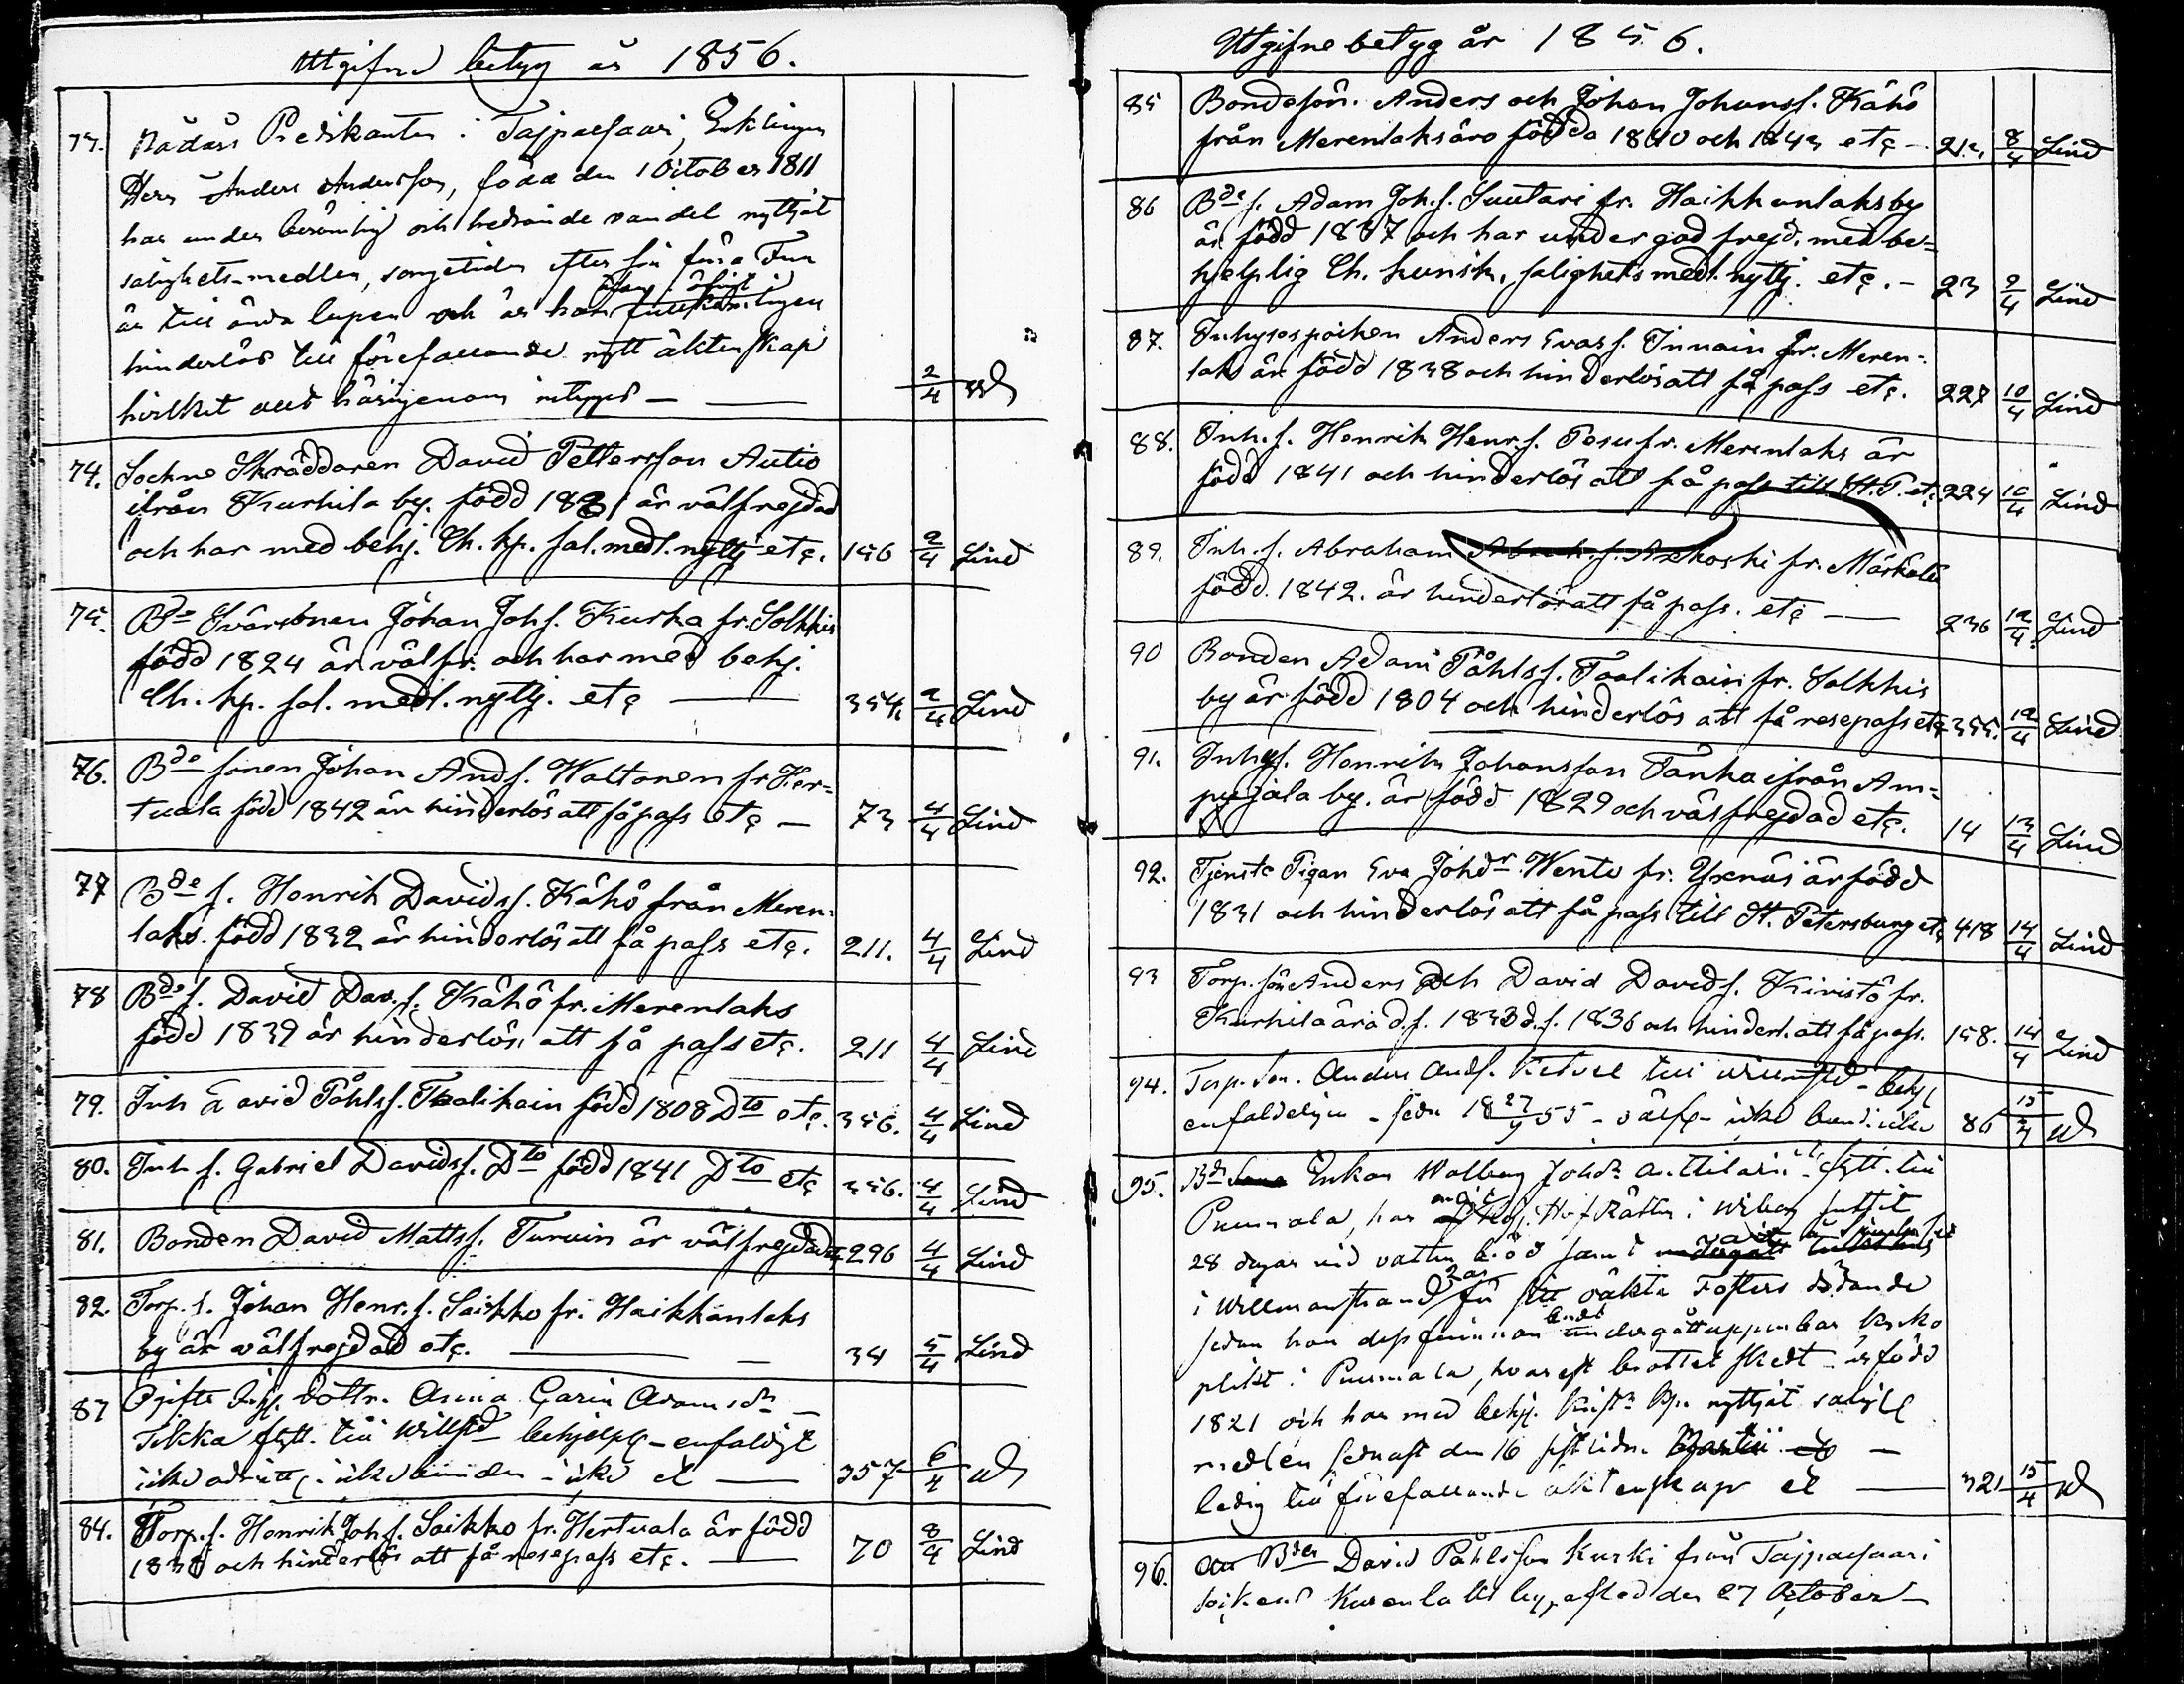 Utgifne betyg år 1856.
73. Nådårs Predikanten i Taipalsaari, Enklingen
Herr Anders Andersson, född den 1 October 1811
har under berömlig och hedrande vandel nyttjat
salighets-medlen, sorgetiden efter sin förra Fru
är till ända lupen och är han
hinderlös till förefallande nytt äktenskap
hvilket härigenom intygas — 2/4
74. Sockne Skräddaren David Pettersson Autio
ifrån Kurhila by. född 1821 är välfrejdad
och har med behj. Ch. kp. sal. medl. nyttj etc. 156 2/4 Lind
75. Bde Svärsonen Johan Johs. Kurka fr. Solkkis
född 1824 är välfr. och har med behj.
Ch. kp. sal. medl. nyttj. etc — 354 2/4 Lind
76. Bde sonen Johan Ands. Waltonen fr Her-
tuala född 1842 är hinderlös att få pass etc — 73 4/4 Lind
77 Bde s. Henrik Davidss. Kähö från Meren-
laks. född 1832 är hinderlös att få pass etc. 211. 4/4 Lind
78 Bde s. David Dav.s. Kähö fr. Merenlaks
född 1839 är hinderlös att få pass etc. 211 4/4 Lind
79. Inh David Påhlss. Taalikain född 1808 Dto etc. 356. 4/4 Lind
80. Inh s. Gabriel Davidss. Dto född 1841 Dto etc 356. 4/4 Lind
81. Bonden David Mattss. Turuin är välfrejdad 296 4/4 Lind
82. Torp. s. Johan Henr. s. Saikko fr. Haikkanlaks
by är välfrejdad etc. — 34 5/4 Lind
83 Ogifta Inh. dottr. Anna Carin Adamsdr
Sikka flytt. till Willstd behjelpl - enfaldigt
icke — icke — 357 6/4
84. Torp. s. Henrik Johs. Saikko fr. Hertuala är född
1838 och hinderlös att få resepass etc. — 70 8/4 Lind
Utgifne betyg år 1856.
85 Bondesön. Anders och Johan Johanss. Kähö
från Merenlaks äro födda 1840 och 1843 etc — 212, 8/4 Lind
86 Bde s. Adam Joh. s. Suutari fr. Haikkanlaks by
är född 1837 och har under god frejd. med be-
hjelplig Ch. kunsk. salighets medl. nyttj. etc. - 23 9/4 Lind
87. Inhyses pojken Anders Evas s. Innain fr. Meren-
laks är född 1838 och hinderlös att få pass etc. 227 10/4 Lind
88. Inh. s. Henrik Henr. s. Pesu fr. Merenlaks är
född 1841 och hinderlös att få pass till St. P. etc 224 10/4 Lind
89. Inh. s. Abraham Abrah. s. Askoski fr. Märkälä
född. 1842. är hinderlös att få pass. etc — 236 12/4 Lind
90 Bonden Adam Påhlss. Taalikain fr. Solkkis
by är född 1804 och hinderlös att få resepass etc 355. 12/4 Lind
91. Inhys. Henrik Johansson Tanka ifrån Am-
pujala by. är född 1829 och välfrejdad etc. 14 13/4 Lind
92. Tjenste Pigan Eva Johdr Wento fr. Yxnäs är född
1831 och hinderlös att få pass till St. Petersburg etc 418 14/4 Lind
93 Torp. sön Anders och David Davids. Kiristö fr.
Kurhila ära d. f. 1833 d. f. 1836 och hinderl. att få pass. 158. 14/4 Lind
94. Torp. Son. Anders Ands. till Willmstd - behjl
enfaldeligen - född 18 27/4 55 - välfr - icke 86 15/4
95. Bde Enkan Walborg Johdr flytt. till
Puumala, har Hof Rätten i Wiborg suttit
28 dagar vid vatten & bröd samt
i Willmanstrand 2 år för oäkta Fosters dödande
sedan hon dessförinnan undergått uppenbar kyrko
plikt i Puumala, hvarest brottet skedt - är född
1821 och har med behj. Christ. kp. nyttjat salighets
medlen sednast den 16 sistledne Martii —
ledig till förefallande äktenskap et — 321 15/4
96. Bden David Påhlsson Kurki från Taipalsaari
sockens Kurenlaks by, afled den 27 October —